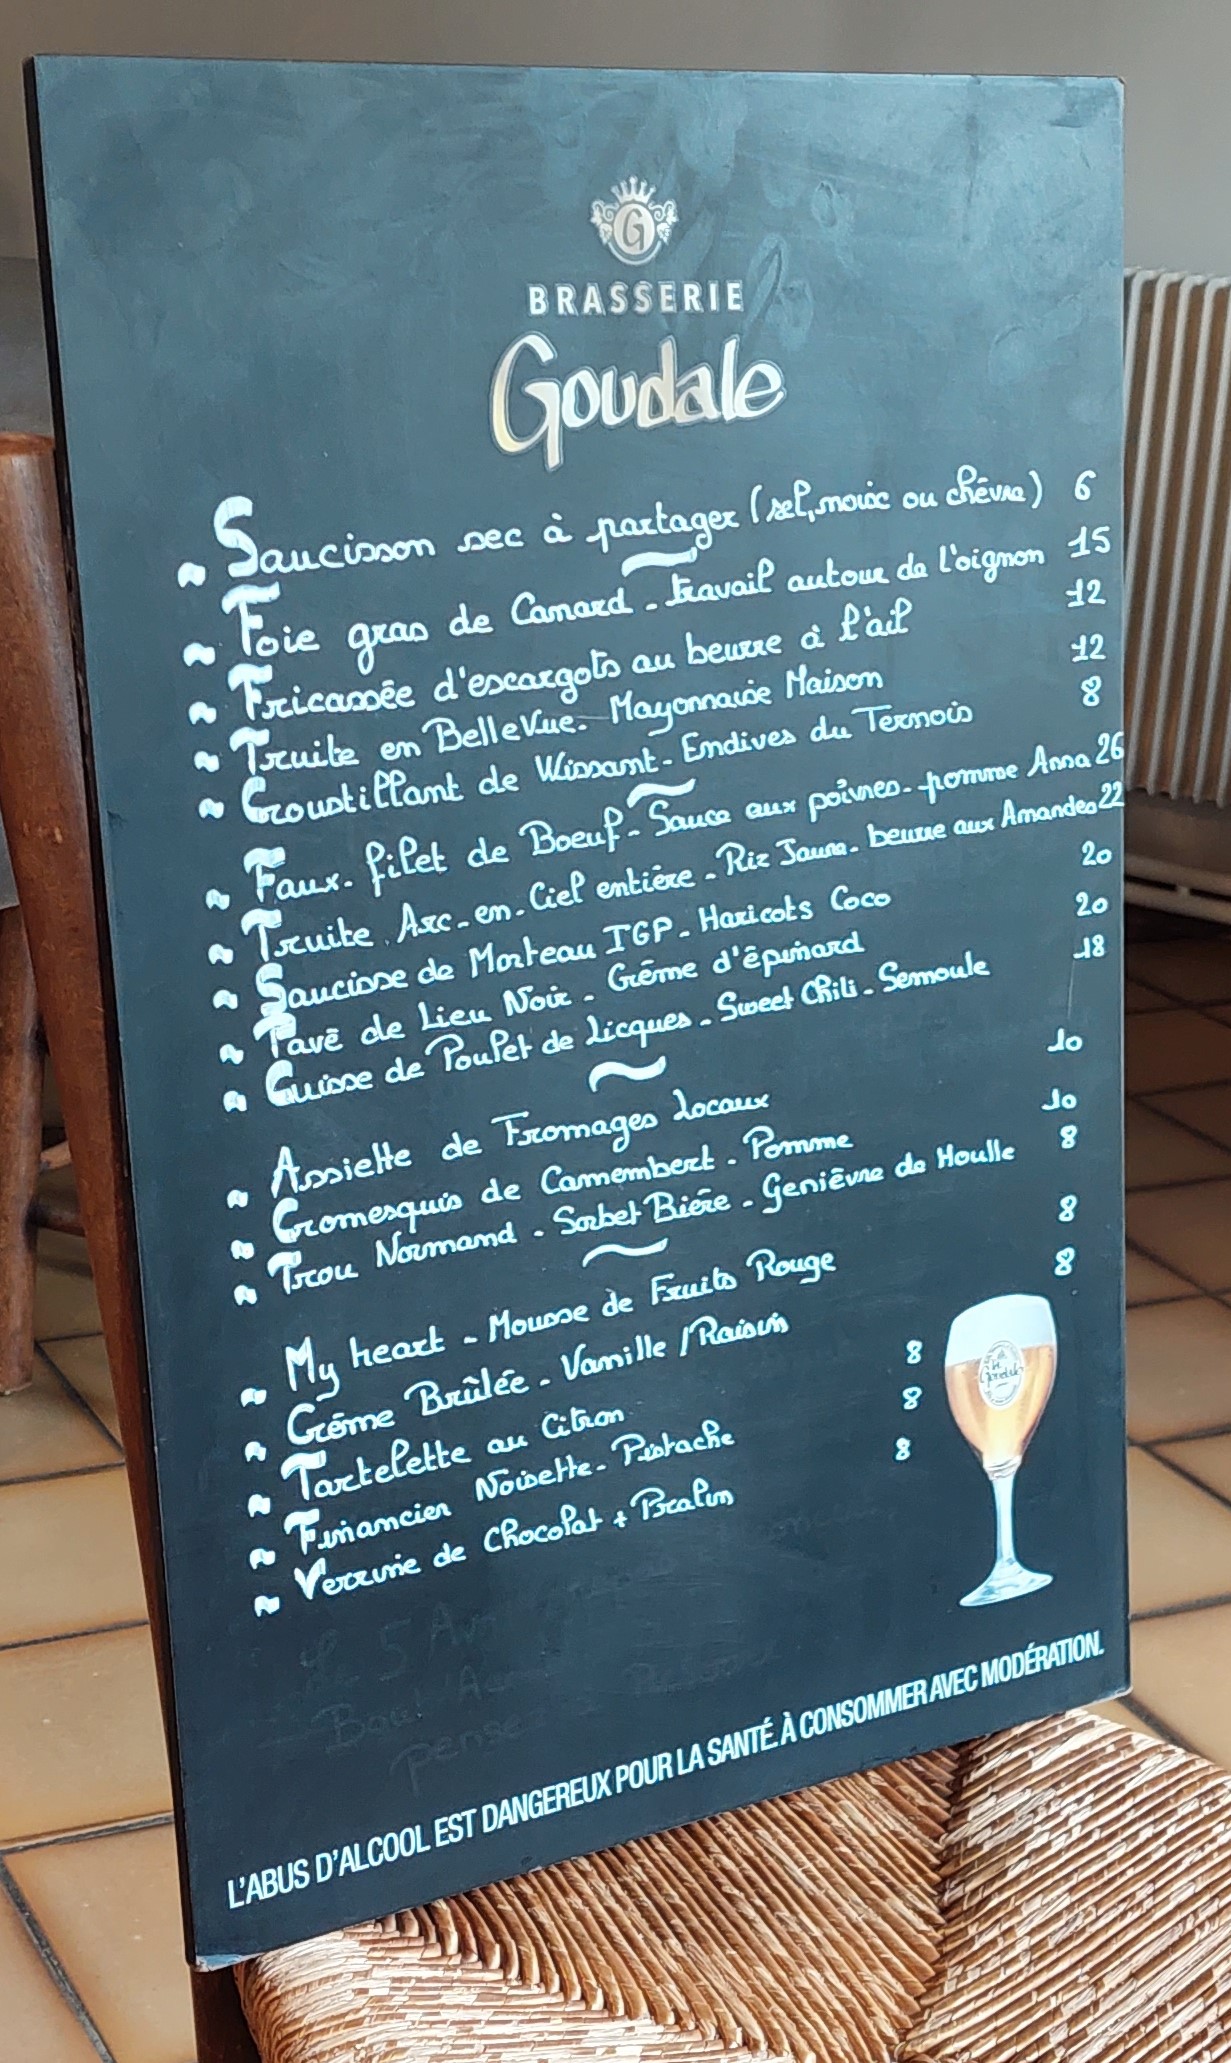 G
BRASSERIE
Goudale
~ Saucisson sec à partager (sel, noix ou chèvre) 6
~
~ Foie gras de Canard - travail autour de l'oignon 15
~ Fricassée d'escargots au beurre à l'ail 12
~ Truite en BelleVue - Mayonnaise Maison 12
~ Croustillant de Wissant - Endives du Ternois 8
~
~ Faux-filet de Boeuf - Sauce aux poivres - pomme Anna 26
~ Truite Arc-en-Ciel entière - Riz Jaune - beurre aux Amandes 22
~ Saucisse de Morteau IGP - Haricots Coco 20
~ Pavé de Lieu Noir - Crème d'épinard 20
~ Cuisse de Poulet de Licques - Sweet Chili - Semoule 18
~
~ Assiette de Fromages Locaux 10
~ Cromesquis de Camembert - Pomme 10
~ Trou Normand - Sorbet Bière - Genièvre de Houlle 8
~
~ My heart - Mousse de Fruits Rouge 8
~ Crème Brûlée - Vanille / Raisin 8
~ Tartelette au Citron 8
~ Financier Noisette - Pistache 8
~ Verrine de Chocolat + Pralin 8
la Goudale
L'ABUS D'ALCOOL EST DANGEREUX POUR LA SANTÉ. À CONSOMMER AVEC MODÉRATION.